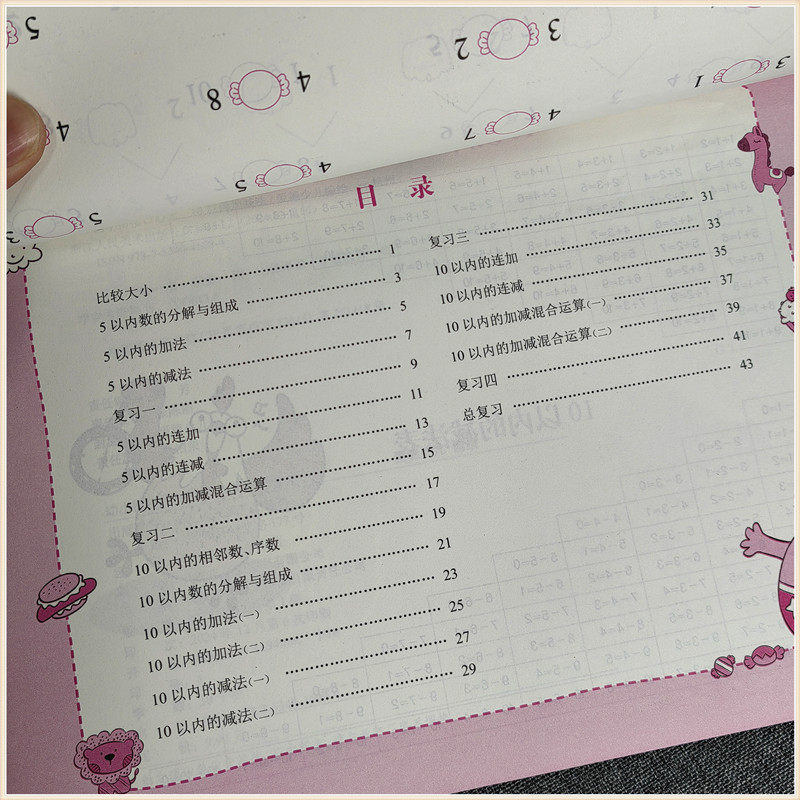 5
4 8
3 2
3 1
4
4 7
4 5
5
3
目 录
比较大小 1
5以内数的分解与组成 3
5以内的加法 5
5以内的减法 7
复习一 9
5以内的连加 11
5以内的连减 13
5以内的加减混合运算 15
复习二 17
10以内的相邻数、序数 19
10以内数的分解与组成 21
10以内的加法(一) 23
10以内的加法(二) 25
10以内的减法(一) 27
10以内的减法(二) 29
复习三 31
10以内的连加 33
10以内的连减 35
10以内的加减混合运算(一) 37
10以内的加减混合运算(二) 39
复习四 41
总复习 43